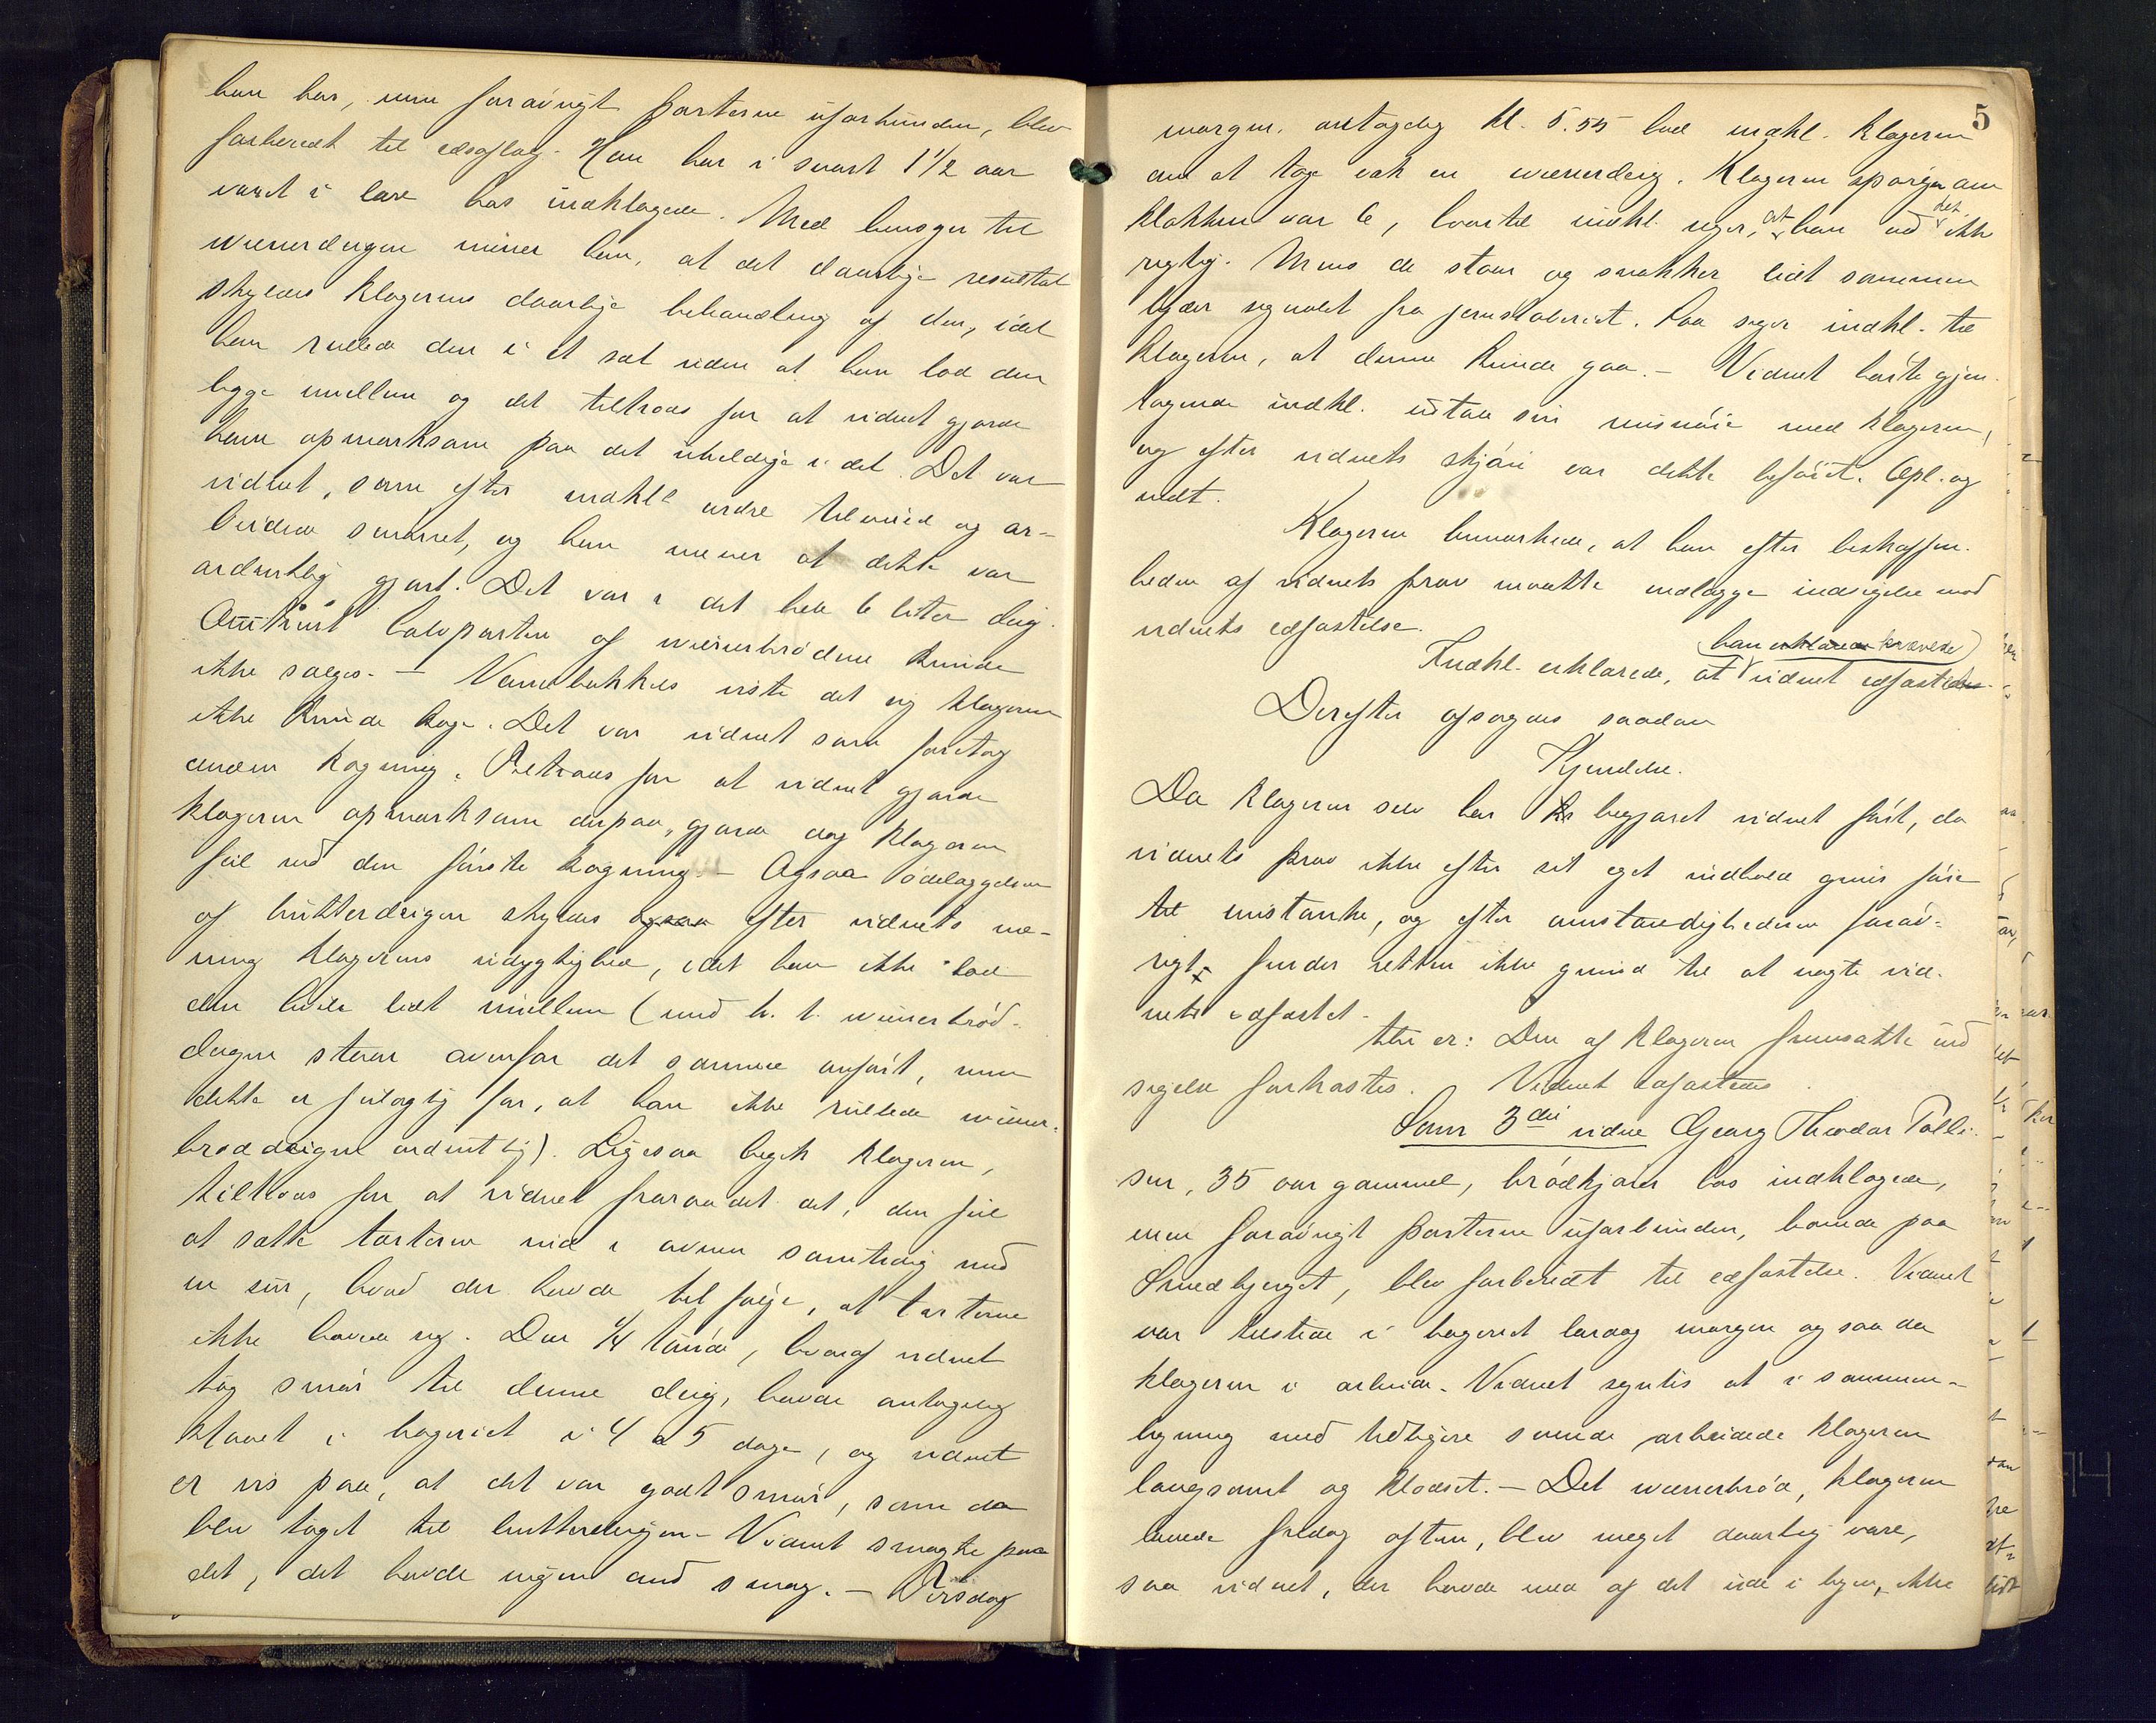 han har, men forøvrigt parterne uforbunden, blev
forberedt til edsaflæg. Han har i snart 1 1/2 aar
været i lære hos indklagede. Med hensyn til
wienerdeigen mener han, at det daarlige resultat
skyldes klagerens daarlige behandling af den, idet
han rullede den i et sæt uden at han lod den
ligge imellem og det tiltrods for at vidnet gjorde
ham opmærksom paa det uheldige i det. Det var
vidnet, som efter indkl.s ordre tilveied og ar-
beidede smørret, og han mener at dette var
ordentlig gjort. Det var i det hele 6 liter deig.
Omtrent halvparten af wienerbrødene kunde
ikke sælges. – Vandbakkels viste det sig klageren
ikke kunde koge. Det var vidnet som foretog
anden kogning. Tiltrods for at vidnet gjorde
klageren opmærksom derpaa, gjorde dog klageren
feil ved den første kogning. – Ogsaa ødelæggelsen
af butterdeigen skyldes ogsaa efter vidnets me-
ning klagerens udygtighed, idet han ikke lod
den hvile lidt imellem (med h. t. wienerbrød-
deigen staar ovenfor det samme anført, men
dette er feilagtig for, at han ikke rullede wiener-
brøddeigen ordentlig). Ligesaa begik klageren,
tiltrods for at vidnet fraraadet det, den feil
at sætte tærterne ind i ovnen samtidig med
en sur, hvad der havde til følge, at tærterne
ikke hævede sig. Den 1/4 tønde, hvoraf vidnet
tog smør til denne deig, havde antagelig
staaet i bageriet i 4 a 5 dage, og vidnet
er vis paa, at det var godt smør, som da
blev taget til butterdeigen. Vidnet smagte paa
det, det havde ingen ond smag. – Tirsdag
5
morgen antagelig kl. 5.55 bad indkl. klageren
om at tage væk en wienerdeig. Klageren spørger om
klokken var 6, hvortil indkl. siger, at han ved det ikke
rigtig. Mens de staar og snakker lidt sammen
lyder signalet fra jernstøberiet. Saa siger indkl. til
klageren, at denne kunde gaa. – Vidnet hørte gjen-
tagende indkl. udtale sin misnøie med klageren,
og efter vidnets skjøn var dette beføiet. Opl. og
vedt.
Klageren bemærkede, at han efter beskaffen-
heden af vidnets prov maatte nedlægge indsigelse mod
vidnets edfæstelse.
Indkl. erklærede, at han erklærede krævede vidnet edfæstet.
Derefter afsagdes saadan
Kjendelse.
Da klageren selv har begjæret vidnet ført, da
vidnets prov ikke efter sit eget indhold grund føie
til mistanke, og efter omstændighederne forøv-
rigt finder retten ikke grund til at nægte vid-
net edfæstet.
thi er: Den af klageren fremsatte ind
sigelse forkastes. Vidnet edfæstedes.
Som 3die vidne Georg Theodor Palle-
sen, 35 aar gammel, brødkjører hos indklagede,
men forøvrigt parterne uforbunden, boende paa
Smedbjerget, blev forberedt til edfæstelse. Vidnet
var tilstede i bageriet lørdag morgen og saa da
klageren i arbeide. Vidnet syntes at i sammen-
ligning med tidligere svende arbeidede klageren
langsomt og klodset. – Det wienerbrød, klageren
lavede fredag aften, blev meget daarlig vare,
saa vidnet, der havde med af det ude i byen, ikke